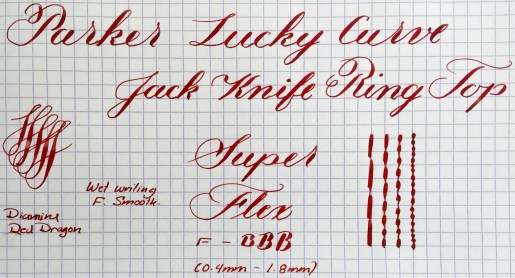 Parker Lucky Curve
Jack Knife Ring Top
Super
Flex
F - BBB
(0.4mm - 1.8mm)
Wet writing
F. Smooth.
Diamine
Red Dragon